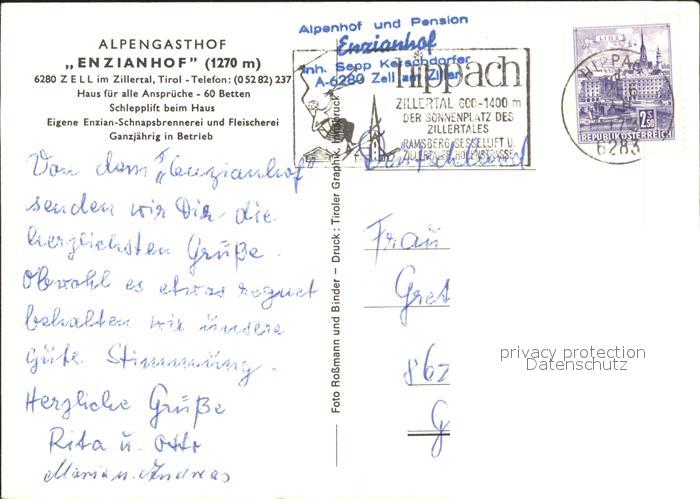 ALPENGASTHOF
„ENZIANHOF” (1270 m)
6280 ZELL im Zillertal, Tirol - Telefon: (0 52 82) 237
Haus für alle Ansprüche - 60 Betten
Schlepplift beim Haus
Eigene Enzian-Schnapsbrennerei und Fleischerei
Ganzjährig in Betrieb
Von dem "Enzianhof"
senden wir Dir die
herzlichsten Grüße.
Obwohl es etwas regnet
behalten wir unsere
gute Stimmung.
Herzliche Grüße
Rita u. Otto
Maria u. Andreas
Foto Roßmann und Binder – Druck: Tiroler Graphik, Innsbruck
Alpenhof und Pension
Enzianhof
Inh. Sepp Kerschdorfer
A-6280 Zell am Ziller
hippach
ZILLERTAL 600-1400 m
DER SONNENPLATZ DES
ZILLERTALES
RAMSBERG SESSELLIFT U.
ZILLERTALER HÖHENSTRASSE
HIPPACH
6283
LINZ
2.50
REPUBLIK ÖSTERREICH
Deutschland
Frau
Gret
862
G
privacy protection
Datenschutz